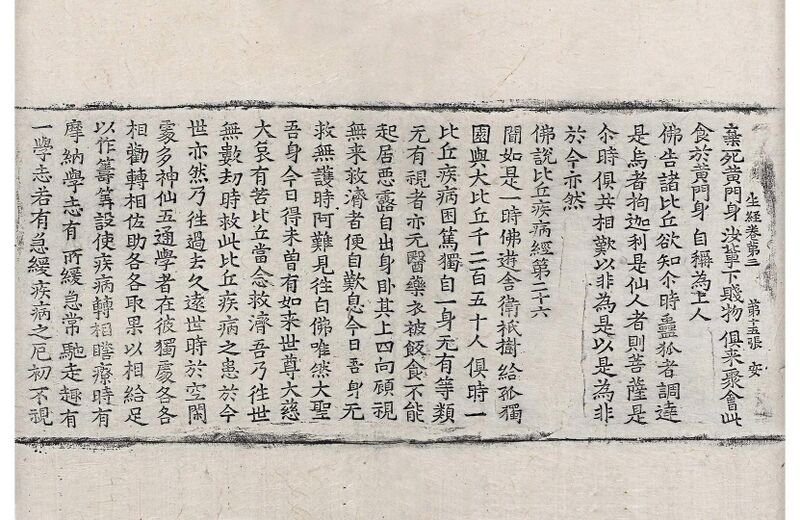 生經卷第三 第十五張 安
棄死黃門身 汝軰下賤物 俱来聚會此
食於黃門身 自稱為上人
佛告諸比丘欲知尒時蠱狐者調達
是烏者拘迦利是仙人者則菩薩是
尒時俱共相歎以非為是以是為非
於今亦然
佛說比丘疾病經第二十六
聞如是一時佛遊舍衛祇樹給孤獨
園與大比丘千二百五十人俱時一
比丘疾病困篤獨自一身无有等類
无有視者亦无醫藥衣被飲食不能
起居惡露自出身卧其上四向顧視
無来救濟者便自歎息今日吾身无
救無護時阿難見往白佛唯然大聖
吾身今日得未曾有如来世尊大慈
大哀有苦比丘當念救濟吾乃往世
無數劫時救此比丘疾病之患於今
世亦然乃往過去久遠世時於空閑
處多神仙五通學者在彼獨處各各
相勸轉相佐助各各取果以相給足
以作籌筭設使疾病轉相瞻療時有
摩納學志有所緩急常馳走趣有
一學志若有急緩疾病之厄初不視